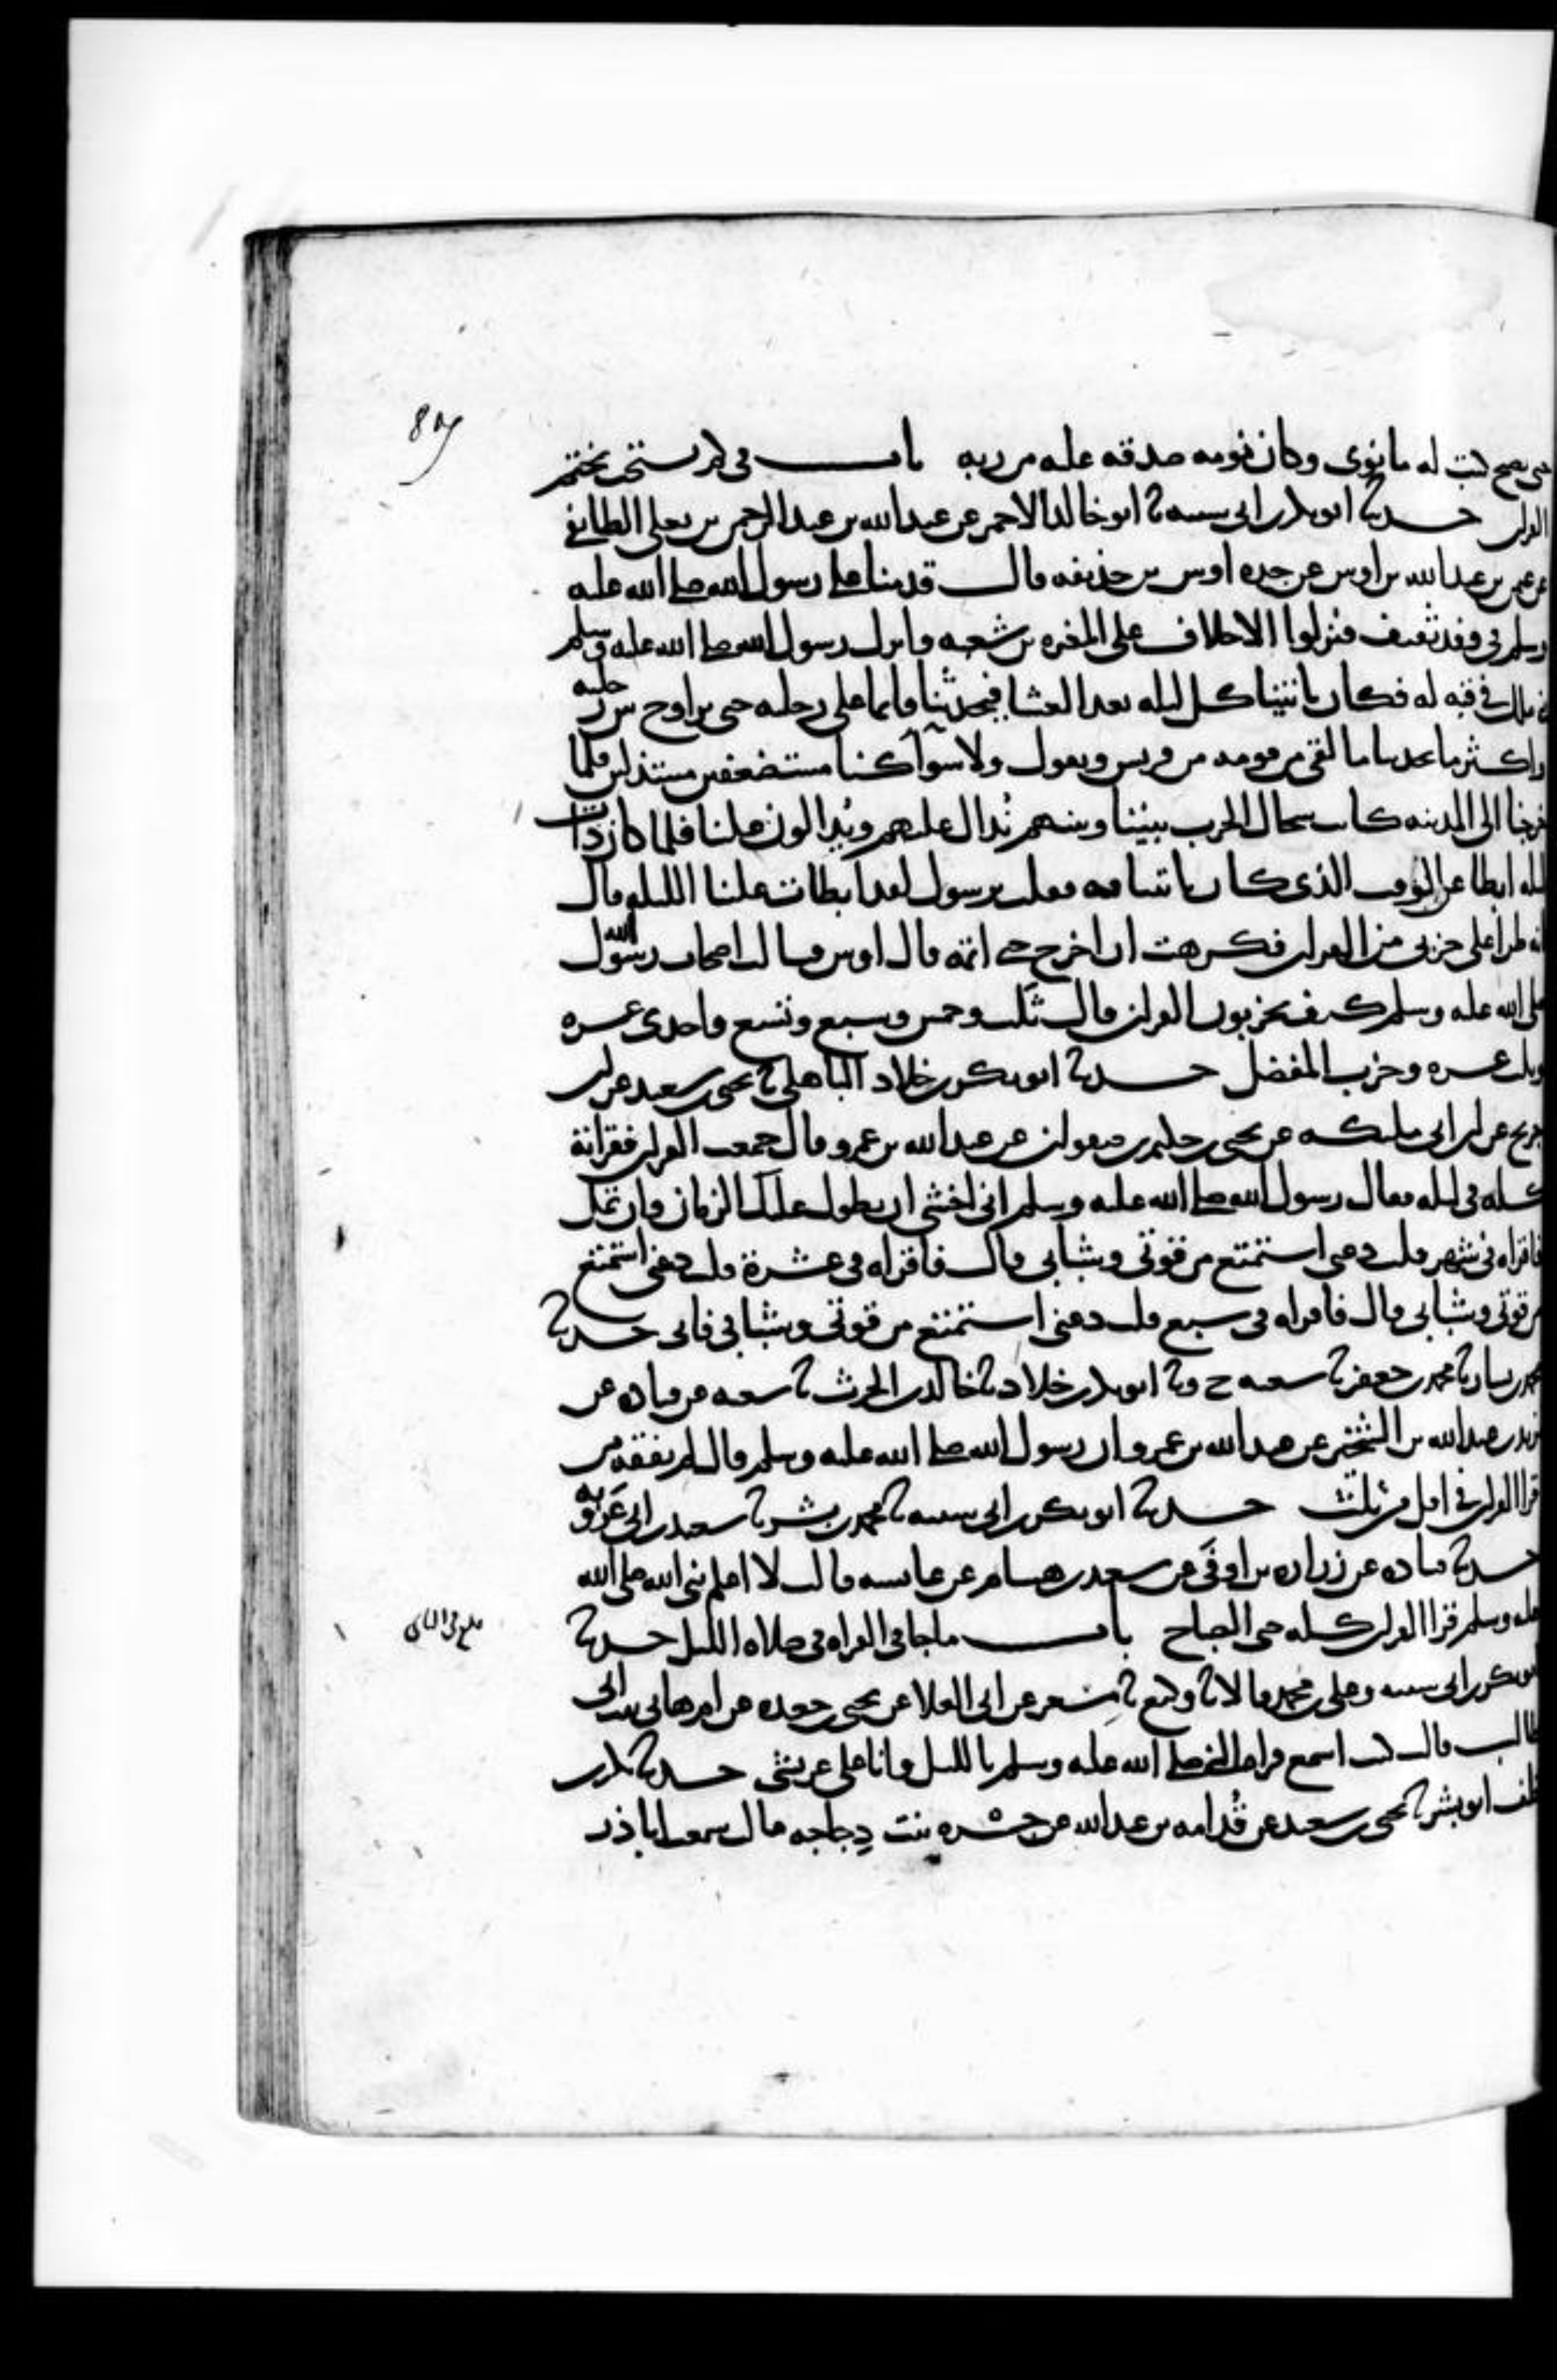 حتى يصبح كتب له ما نوى وكان نومه صدقه عليه من ربه باب في كم يستحب يختم
القران حدثنا ابو بكر بن ابي شيبه ثنا ابو خالد الاحمر عن عبد الله بن عبد الرحمن بن يعلى الطائفي
عن عثمن بن عبد الله بن اوس عن جده اوس بن حذيفه قال قدمنا على رسول الله صلى الله عليه
وسلم في وفد ثقيف فنزلوا الاحلاف على المغيره بن شعبه وانزل رسول الله صلى الله عليه وسلم
بني ملك في قبه له فكان ياتينا كل ليله بعد العشا فيحدثنا قايما على رجليه حتى يراوح بين رجليه
واكثر ما يحدثنا ما لقي من قومه من قريش ويقول ولا سوا كنا مستضعفين مستذلين فلما
خرجنا الى المدينه كانت سجال الحرب بيننا وبينهم ندال عليهم ويدالون علينا فلما كان ذات
ليله ابطا عن الوقت الذي كان ياتينا فيه فقلت يرسول لقد ابطات علينا الليله قال
انه طرا علي حزبي من القران فكرهت ان اخرج حتى اتمه قال اوس فسالت اصحاب رسول الله
صلى الله عليه وسلم كيف تحزبون القران قالوا ثلث وخمس وسبع وتسع واحدى عشره
وثلث عشره وحزب المفصل حدثنا ابو بكر بن خلاد الباهلي ثنا يحيى بن سعيد عن ابن
جريج عن ابن ابي مليكه عن يحيى بن حكيم بن صفوان عن عبد الله بن عمرو قال جمعت القران فقراته
كله في ليله فقال رسول الله صلى الله عليه وسلم اني اخشى ان يطول عليك الزمان وان تمل
فاقراه في شهر قلت دعني استمتع من قوتي وشبابي قال فاقراه في عشرة قلت دعني استمتع
من قوتي وشبابي قال فاقراه في سبع قلت دعني استمتع من قوتي وشبابي فابى حدثنا
محمد بن بشار ثنا محمد بن جعفر ثنا شعبه ح وثنا ابو بكر بن خلاد ثنا خالد بن الحرث ثنا شعبه عن قتاده عن
يزيد بن عبد الله بن الشخير عن عبد الله بن عمرو ان رسول الله صلى الله عليه وسلم قال لم يفقه من
قرا القران في اقل من ثلث حدثنا ابو بكر بن ابي شيبه ثنا محمد بن بشر ثنا سعيد بن ابي عروبه
حدثنا قتاده عن زراره بن اوفى عن سعد بن هشام عن عايشه قالت لا اعلم نبي الله صلى الله
عليه وسلم قرا القران كله حتى الصباح باب ما جا في القراه في صلاه الليل حدثنا
ابو بكر بن ابي شيبه وعلي بن محمد قالا ثنا وكيع ثنا مسعر عن ابي العلا عن يحيى بن جعده عن ام هاني بنت ابي
طالب قالت كنت اسمع قراه النبي صلى الله عليه وسلم بالليل وانا على عريشي حدثنا بكر بن
خلف ابو بشر ثنا يحيى بن سعيد عن قدامه بن عبد الله عن جسره بنت دجاجه قال سمعت ابا ذر